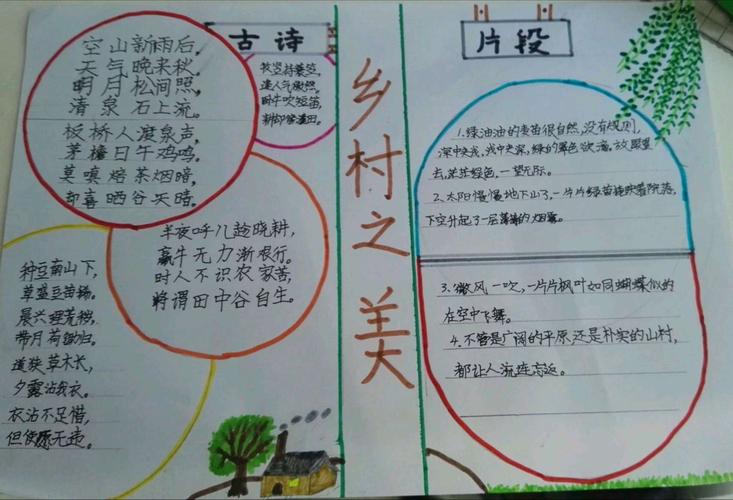 古诗
空山新雨后，
天气晚来秋。
明月松间照，
清泉石上流。
板桥人渡泉声，
茅檐日午鸡鸣。
莫嗔焙茶烟暗，
却喜晒谷天晴。
牧竖持蓑笠，
逢人气傲然。
卧牛吹短笛，
耕却傍溪田。
半夜呼儿趁晓耕，
羸牛无力渐艰行。
时人不识农家苦，
将谓田中谷自生。
种豆南山下，
草盛豆苗稀。
晨兴理荒秽，
带月荷锄归。
道狭草木长，
夕露沾我衣。
衣沾不足惜，
但使愿无违。
乡村之美
片段
1.绿油油的麦苗很自然，没有规则，
深中夹浅，浅中夹深，绿的翠色欲滴，放眼望
去，茫茫绿色，一望无际。
2.太阳慢慢地下山了，一片片绿苗映着院落，
下空升起了一层薄薄的烟雾。
3.微风一吹，一片片枫叶如同蝴蝶似的
在空中飞舞。
4.不管是广阔的平原，还是朴实的山村，
都让人流连忘返。